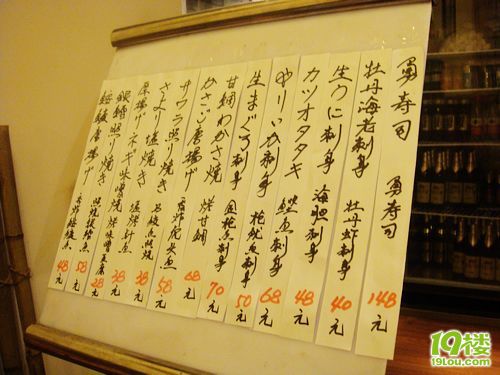 勇寿司 勇寿司 148元
牡丹海老刺身 牡丹虾刺身 40元
生うに刺身 海胆刺身 48元
カツオタタキ 鲣鱼刺身 68元
やりいか刺身 枪鱿鱼刺身 50元
生まぐろ刺身 金枪鱼刺身 70元
甘鯛わかさ焼 烤甘鲷 68元
かさご唐揚げ 香炸 鱼 58元
サワラ照り焼き 马鲛鱼照烧 38元
さより塩焼き 盐烤针鱼 38元
厚揚げネギ味噌焼 烤味噌豆腐 28元
銀鱈照り焼き 照烧银鳕鱼 58元
鮟鱇唐揚げ 香炸鮟鱇鱼 48元
19楼
19lou.com